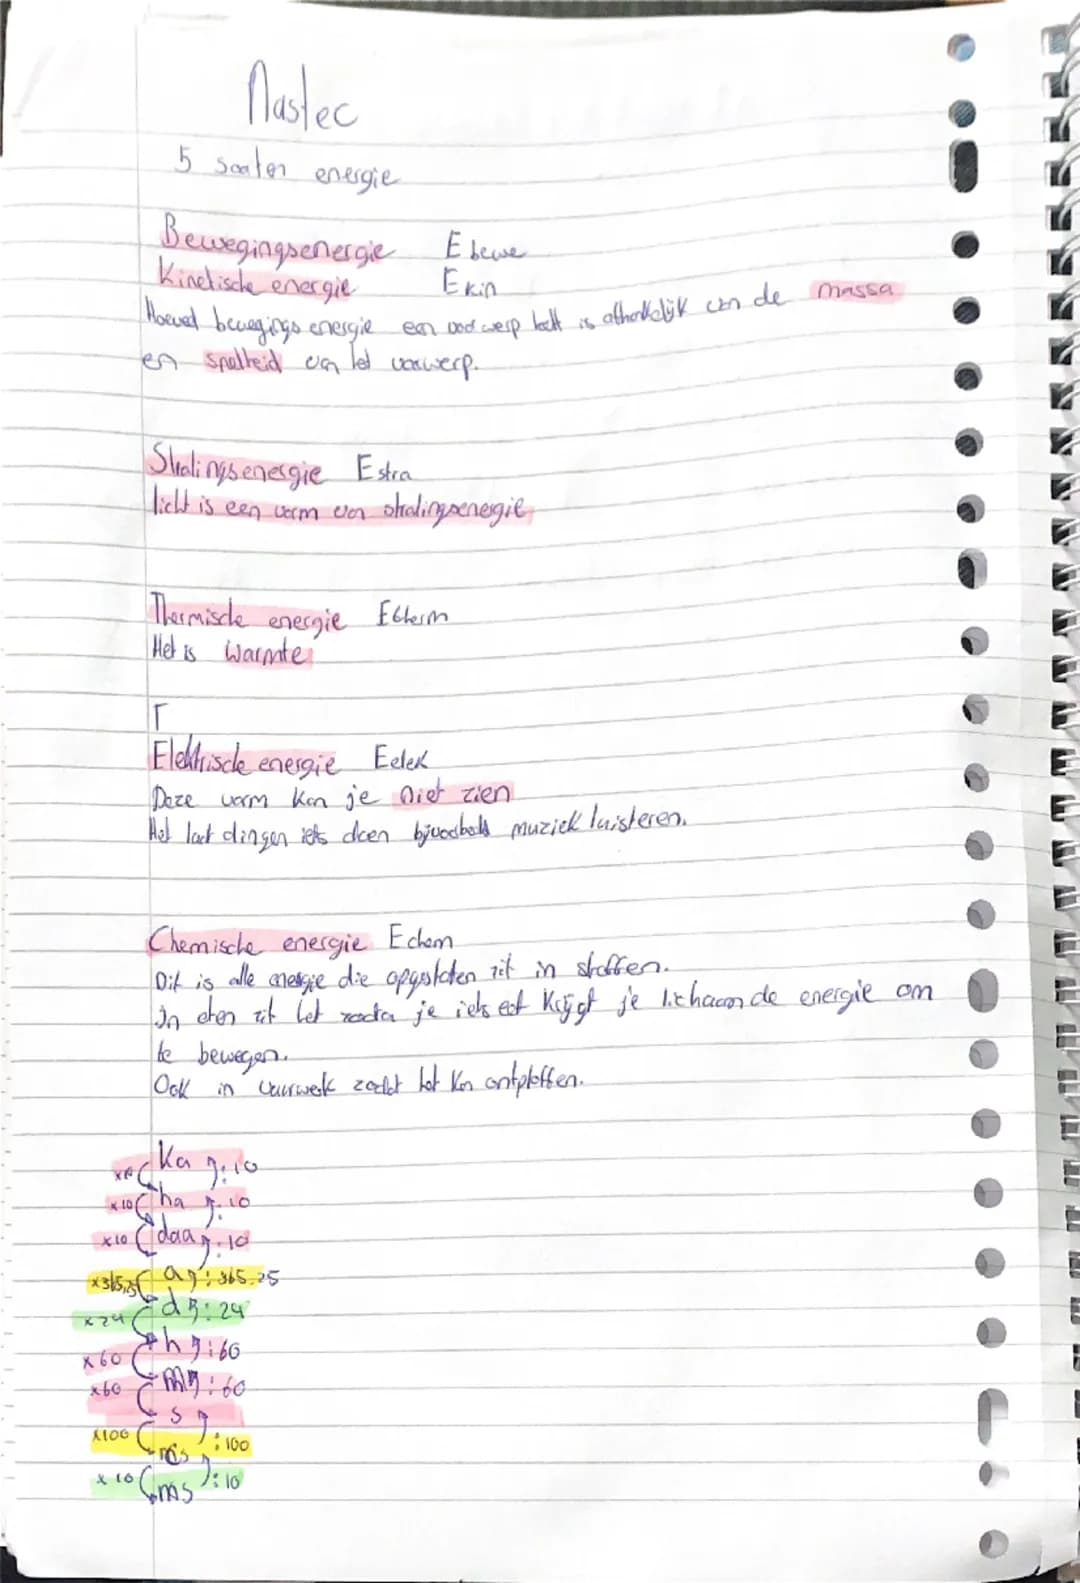 Naslec
5 soorten energie
Bewegingsenergie Ebewe
Kinetische energie Ekin
Hoeveel bewegings energie een voorwerp heeft is afhankelijk van de massa
en snelheid van het voorwerp.
Stralingsenergie Estra
licht is een vorm van stralingsenergie
Thermische energie Etherm
Het is warmte
Elektrische energie Eelek
Deze vorm kan je niet zien
Het laat dingen iets doen bijvoorbeeld muziek luisteren.
Chemische energie Echem
Dit is alle energie die opgesloten zit in stoffen.
In eten zit het zodra je iets eet krijgt je lichaam de energie om
te bewegen.
Ook in vuurwerk zodat het kan ontploffen.
x10 ka :10
x10 ha :10
x10 daa :10
x365,25 a : 365,25
x24 d : 24
x60 h : 60
x60 m : 60
s
x100 : 100
cs
x 10 : 10
ms